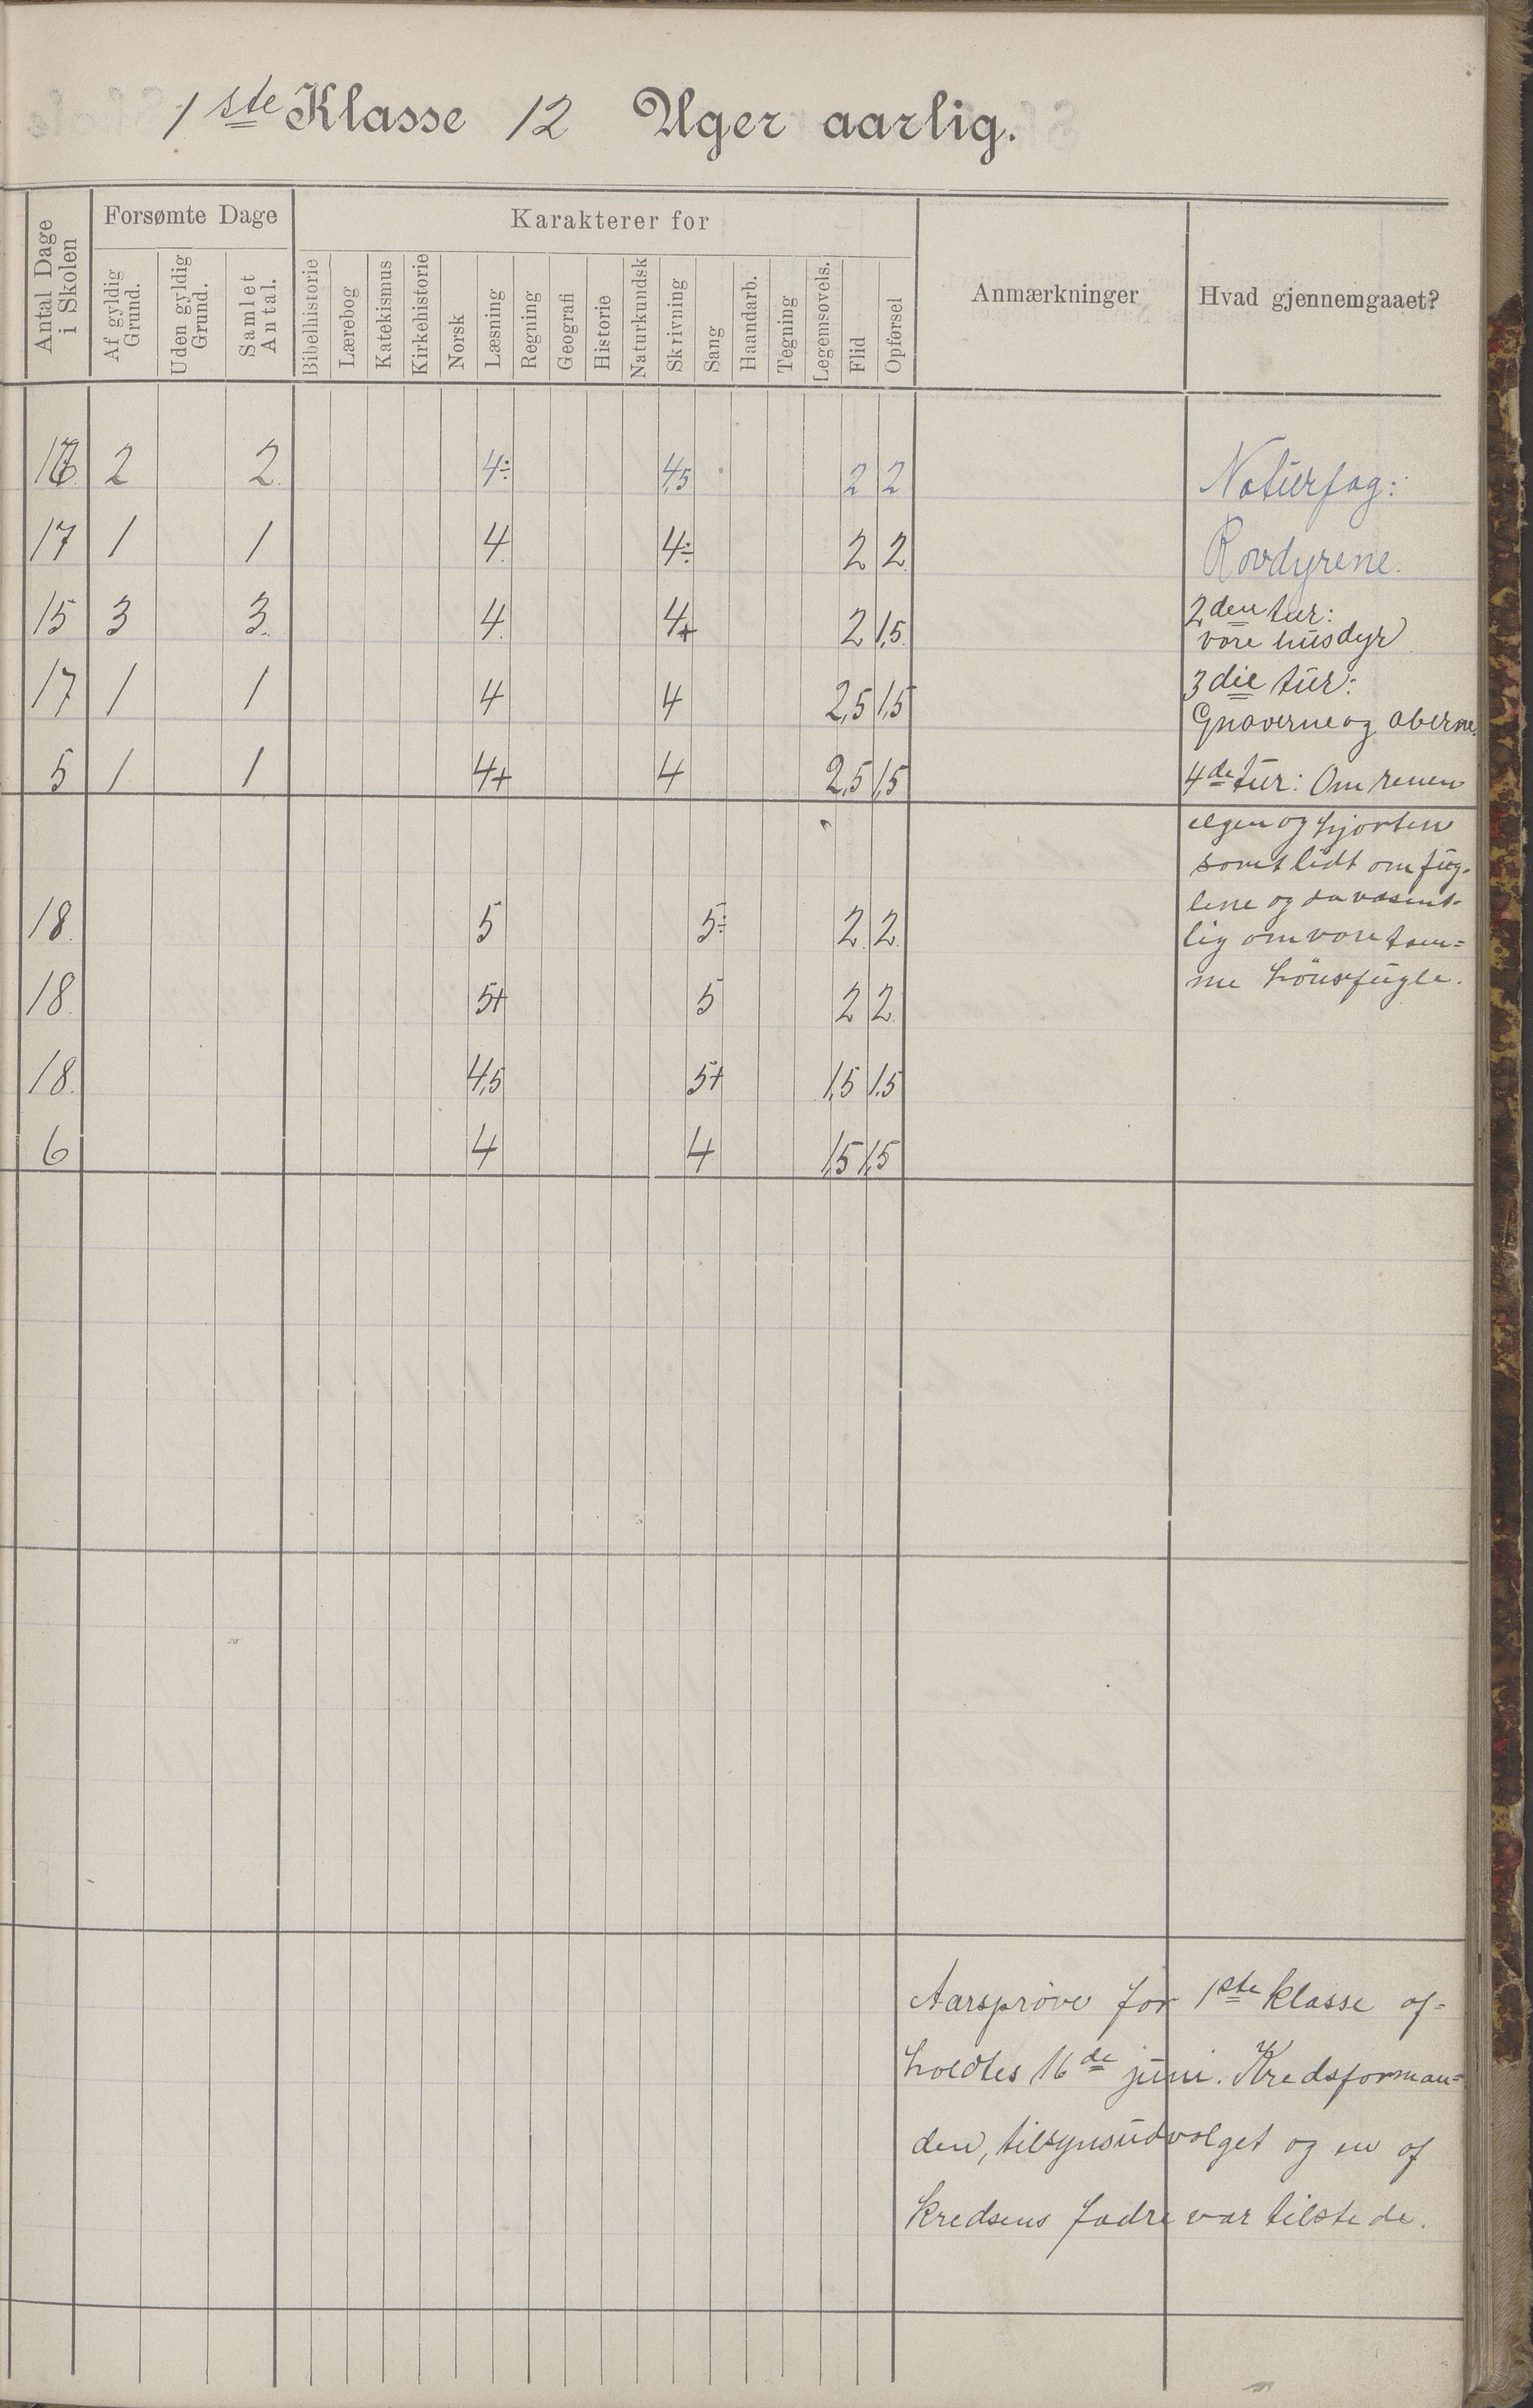 1ste Klasse 12 Uger aarlig.
Antal Dage i Skolen
Forsømte Dage
Af gyldig Grund.
Uden gyldig Grund.
Samlet Antal.
Karakterer for
Bibelhistorie
Lærebog
Katekismus
Kirkehistorie
Norsk
Læsning
Regning
Geografi
Historie
Naturkundsk
Skrivning
Sang
Haandarb.
Tegning
Legemsøvels.
Flid
Opførsel
Anmærkninger
Hvad gjennemgaaet?
2 2 4÷ 4,5 2 2
17 1 1 4 4÷ 2 2
15 3 3 4 4+ 2 1,5
17 1 1 4 4 2,5 1,5
5 1 1 4+ 4 2,5 1,5
18 5 5÷ 2 2
18 5+ 5 2 2
18 4,5 5+ 1,5 1,5
6 4 4 1,5 1,5
Naturfag:
Rovdyrene.
2den tur:
vore husdyr
3die tur:
Gnaverne og aberne.
4de tur: Om renen
elgen og hjorten
samt lidt om fug-
lene og da væsent-
lig om vore tam=
me hönsfugle.
Aarspröve for 1ste klasse af=
holdtes 16de juni. Kredsforman=
den, tilsynsudvalget og en af
kredsens fædre var tilstede.